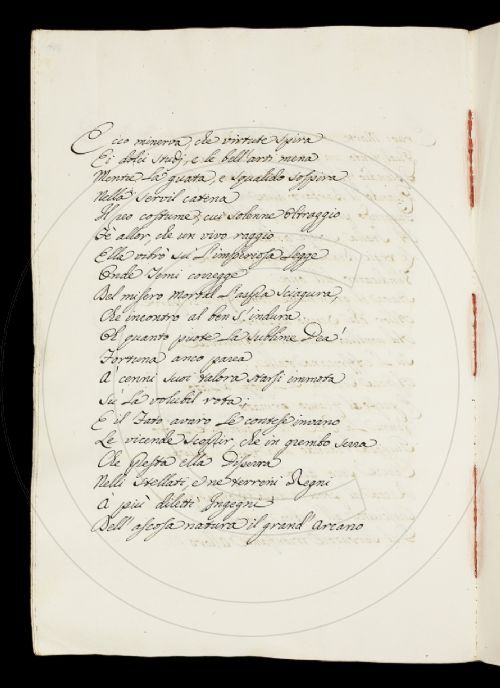 Ecco minerva, che virtute Spira
Ei dolci Studj, e le bell'arti mena
Mente La guata, e Squalido Sospira
Nella Servil catena
Il reo costume, cui Solenne Oltraggio
Fè allor, che un vivo raggio
Ella vibrò Su L'imperiosa Legge
Onde Temi corregge
Del misero Mortal L'aspra Sciagura,
Che incontro al ben S'indura
Oh quanto puote La Sublime Dea!
Fortuna anco parea
A' cenni Suoi talora Starsi immota
Sù La volubil rota;
E il Fato avaro Le contese invano
Le vicende Scoprir, che in grembo Serra
Che presta ella Diserra
Nelli Stellati, e ne terreni Regni
A più diletti Ingegni
Dell'ascosa natura il grand'Arcano